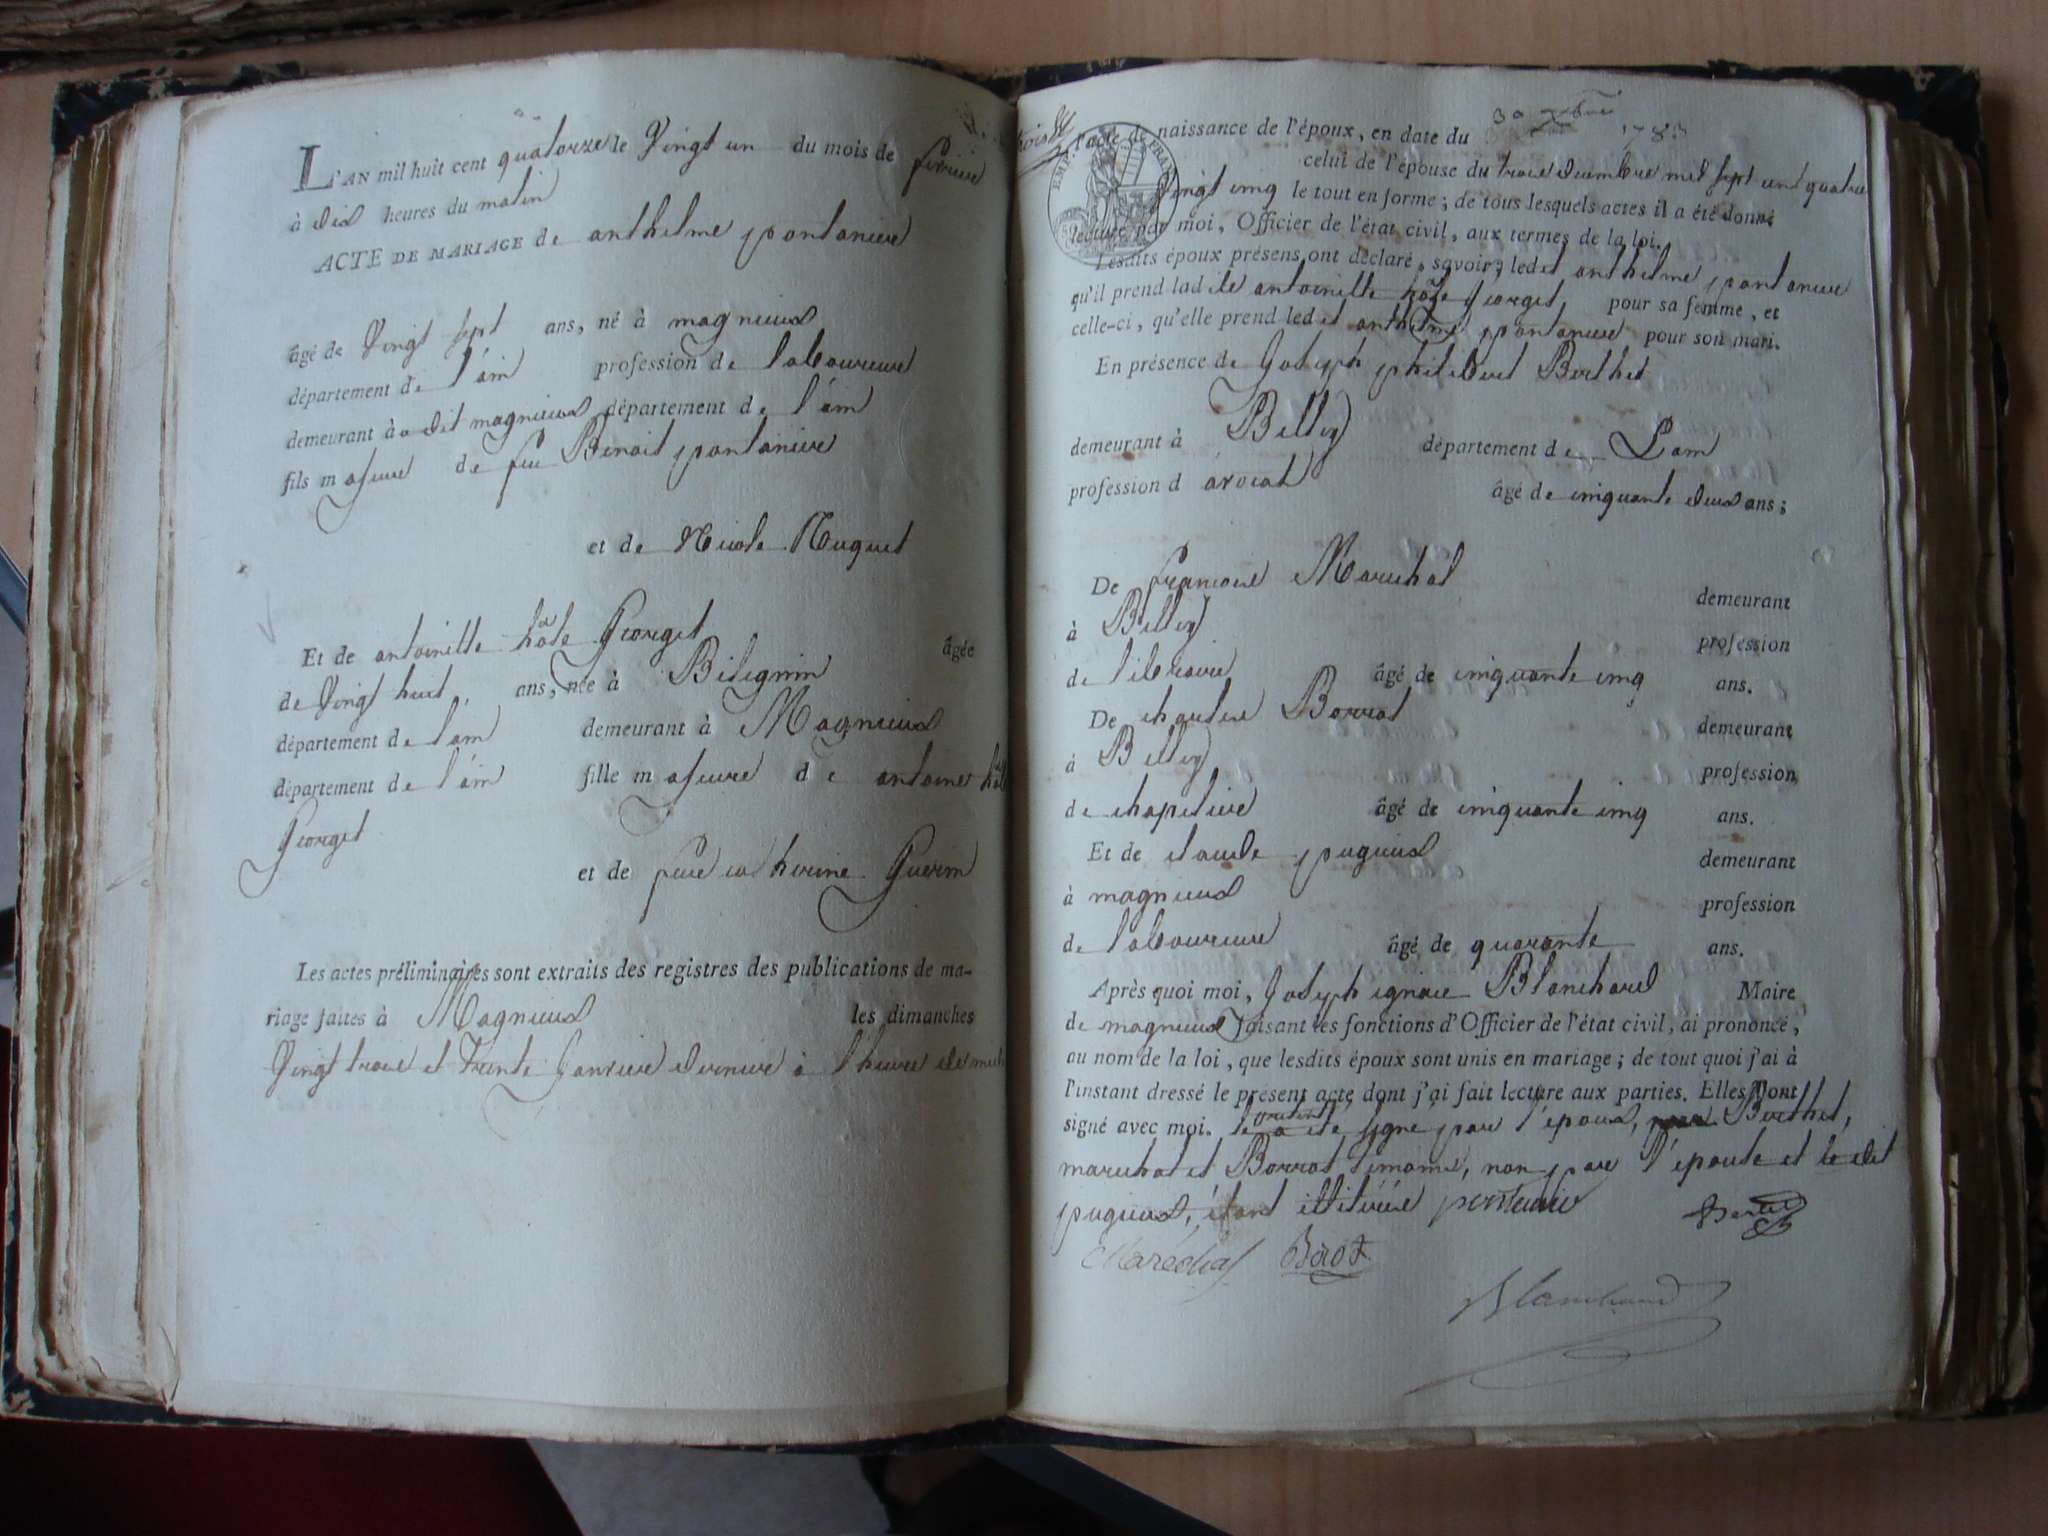 L'AN mil huit cent quatorze le Vingt un du mois de fevrier
à dix heures du matin
ACTE DE MARIAGE de anthelme pontanier
âgé de Vingt sept ans, né à magnieux
département de l'ain profession de laboureur
demeurant à dit magnieux département de l'ain
fils majeur de feu Benoit pontanier
et de Nicole Huguet
Et de antoinitte Georget âgée
de Vingt huit ans, née à Bilignin
département de l'ain demeurant à Magnieux
département de l'ain fille majeure de antoine
Georget
et de feue catherine Guerin
Les actes préliminaires sont extraits des registres des publications de ma-
riage faites à Magnieux les dimanches
Vingt trois et Trente Janvier dernier à l'heure de midi
l'acte de naissance de l'époux, en date du 30 Xbre
celui de l'épouse du trois decembre mil sept cent quatre
Vingt cinq le tout en forme; de tous lesquels actes il a été donné
lecture par moi, Officier de l'état civil, aux termes de la loi.
Lesdits époux présens ont déclaré, savoir; ledit anthelme pontanier
qu'il prend ladite antoinitte Georget pour sa femme, et
celle-ci, qu'elle prend ledit anthelme pontanier pour son mari.
En présence de Joseph philibert Berthet
demeurant à Belley département de L'ain
profession d'avocat âgé de cinquante deux ans;
De francois Marechal demeurant
à Belley profession
de libraire âgé de cinquante cinq ans.
De charles Borrat demeurant
à Belley profession
de chapelier âgé de cinquante cinq ans.
Et de claude pugieux demeurant
à magnieux profession
de laboureur âgé de quarante ans.
Après quoi moi, Joseph ignace Blanchard Maire
de magnieux faisant les fonctions d'Officier de l'état civil, ai prononcé,
au nom de la loi, que lesdits époux sont unis en mariage; de tout quoi j'ai à
l'instant dressé le présent acte dont j'ai fait lecture aux parties. Elles l'ont
signé avec moi. le présent a été signé par l'époux, Berthet,
marechal et Borrat, temoins, non par l'épouse et le dit
pugieux, étant illitérés pontanier Berthet
Maréchal Borat
Blanchard